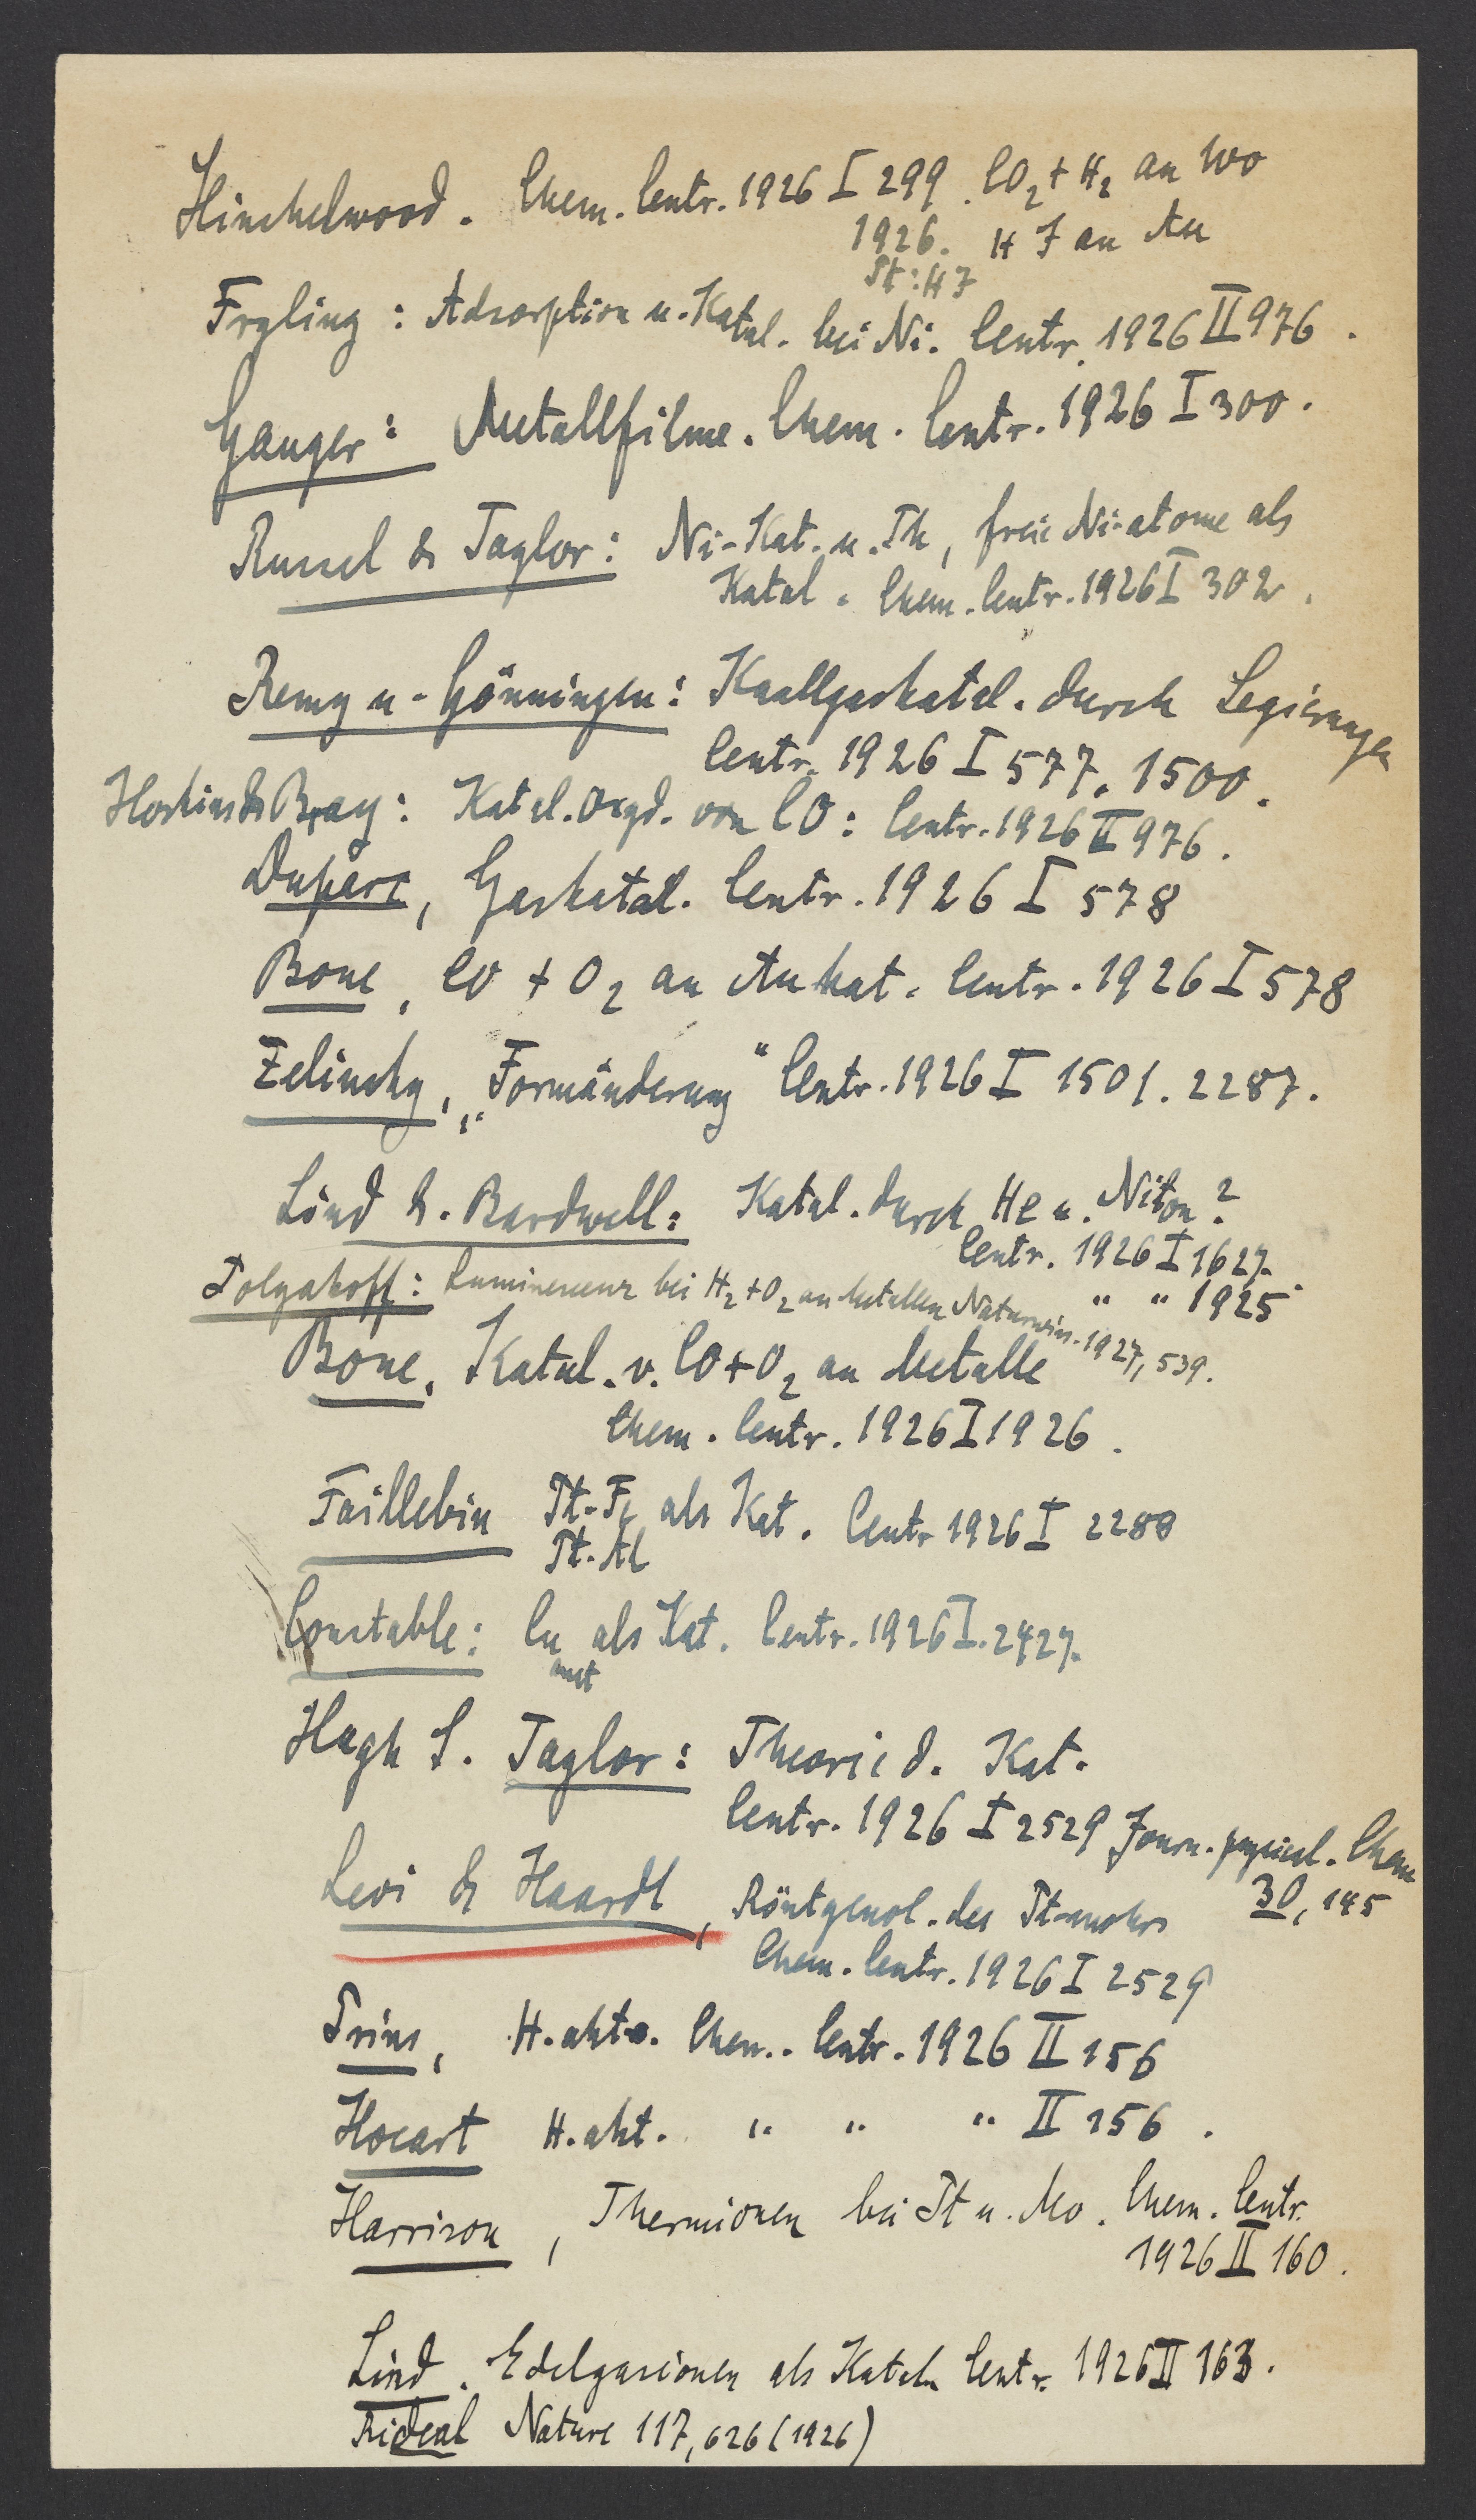 Hinshelwood. Chem. Centr. 1926 I 299. CO2 + H2 an Wo
1926. HJ an Au
Pt: HJ
Fryling: Adsorption u. Katal. bei Ni. Centr. 1926 II 976.
Gauger: Metallfilme. Chem. Centr. 1926 I 300.
Russel & Taylor: Ni-Kat. u. Th, freie Ni-atome als
Katal. Chem. Centr. 1926 I 302.
Remy u. Gönningen: Knallgaskatal. durch Legierungen
Centr. 1926 I 577. 1500.
Hoskins & Bray: Katal. Oxyd. von CO: Centr. 1926 II 976.
Duparc, Gaskatal. Centr. 1926 I 578
Bone, CO + O2 an Au kat. Centr. 1926 I 578
Zelinsky, „Formänderung“ Centr. 1926 I 1501. 2287.
Lind & Bardwell: Katal. durch He u. Niton?
Centr. 1926 I 1627.
" " 1925
Polyakoff: Luminescenz bei H2 + O2 an Metallen Naturwiss. 1927, 539.
Bone. Katal. v. CO + O2 an Metalle
Chem. Centr. 1926 I 1926.
Faillebin Pt-Fe als Kat. Centr 1926 I 2280
Pt-Al
Constable: Cu als Kat. Centr. 1926 I. 2427.
Hugh S. Taylor: Theorie d. Kat.
Centr. 1926 I 2529 Journ. physical. Chem
30, 145
Levi & Haardt, Röntgenol. des Pt-mohrs
Chem. Centr. 1926 I 2529
Prins, H. akt. Chem. Centr. 1926 II 156
Hocart H. akt. " " " II 156.
Harrison, Thermionen bei Pt u. Mo. Chem. Centr.
1926 II 160.
Lind. Edelgasionen als Katal. Centr. 1926 II 163.
Rideal Nature 117, 626 (1926)